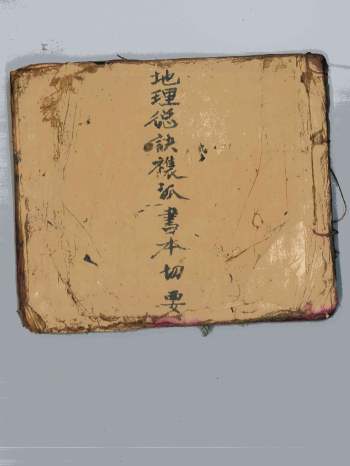 地理總訣襍派書本切要